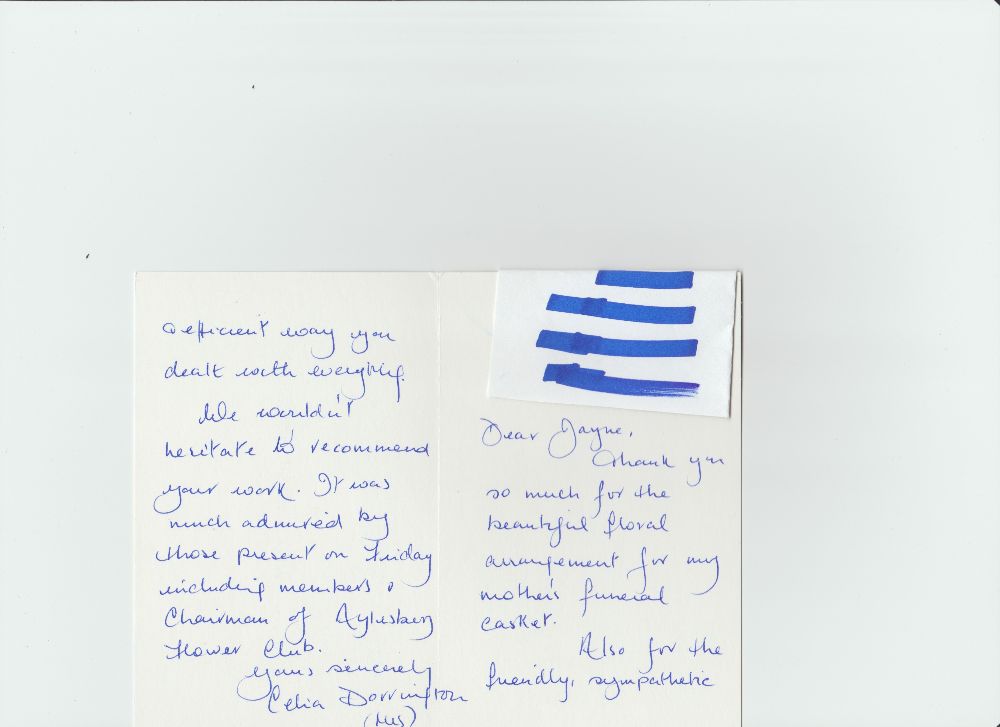 Dear Jayne,
Thank you
so much for the
beautiful floral
arrangement for my
mother's funeral
casket.
Also for the
friendly, sympathetic
& efficient way you
dealt with everything.
We wouldn't
hesitate to recommend
your work. It was
much admired by
those present on Friday
including members &
Chairman of Aylesbury
Flower Club.
Yours sincerely
Celia Dorrington
(Mrs)